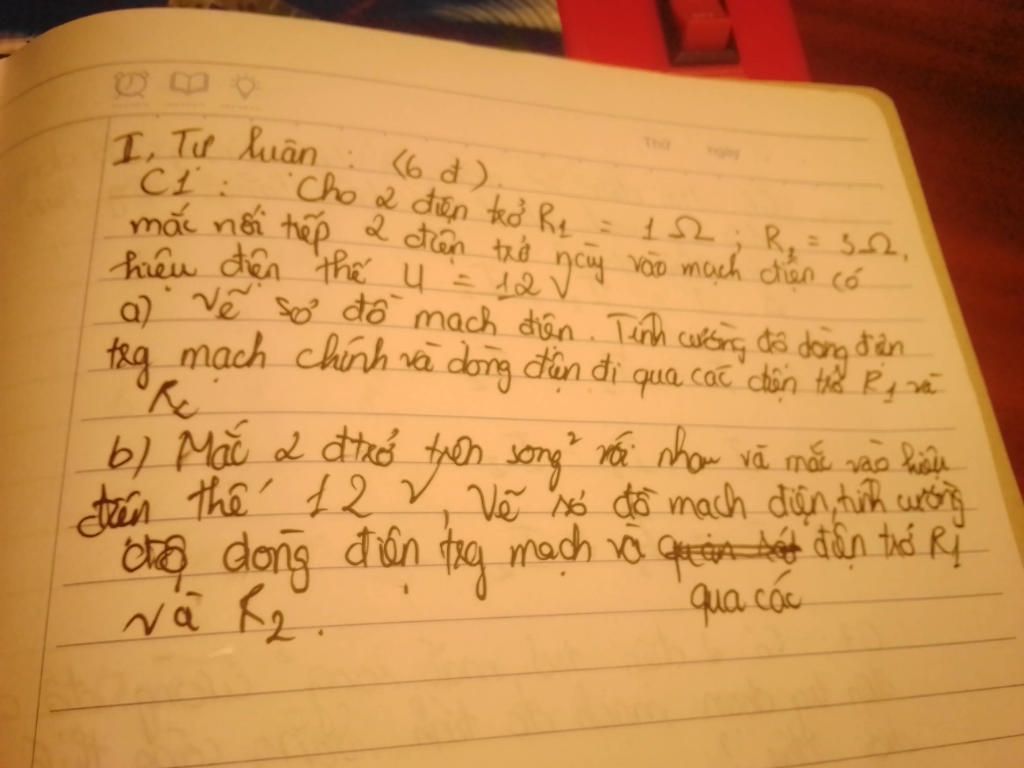 Thứ ngày
I, Tự luận : (6 đ).
C1 : Cho 2 điện trở R1 = 1Ω ; R2 = 3Ω,
mắc nối tiếp 2 điện trở này vào mạch điện có
hiệu điện thế U = 12V
a) Vẽ sơ đồ mạch điện. Tính cường độ dòng điện
trg mạch chính và dòng điện đi qua các điện trở R1 và
R2
b) Mắc 2 đtrở trên song² với nhau và mắc vào hiệu
điện thế 12 V, Vẽ sơ đồ mạch điện, tính cường
độ dòng điện trg mạch và qua các điện trở R1
và R2.